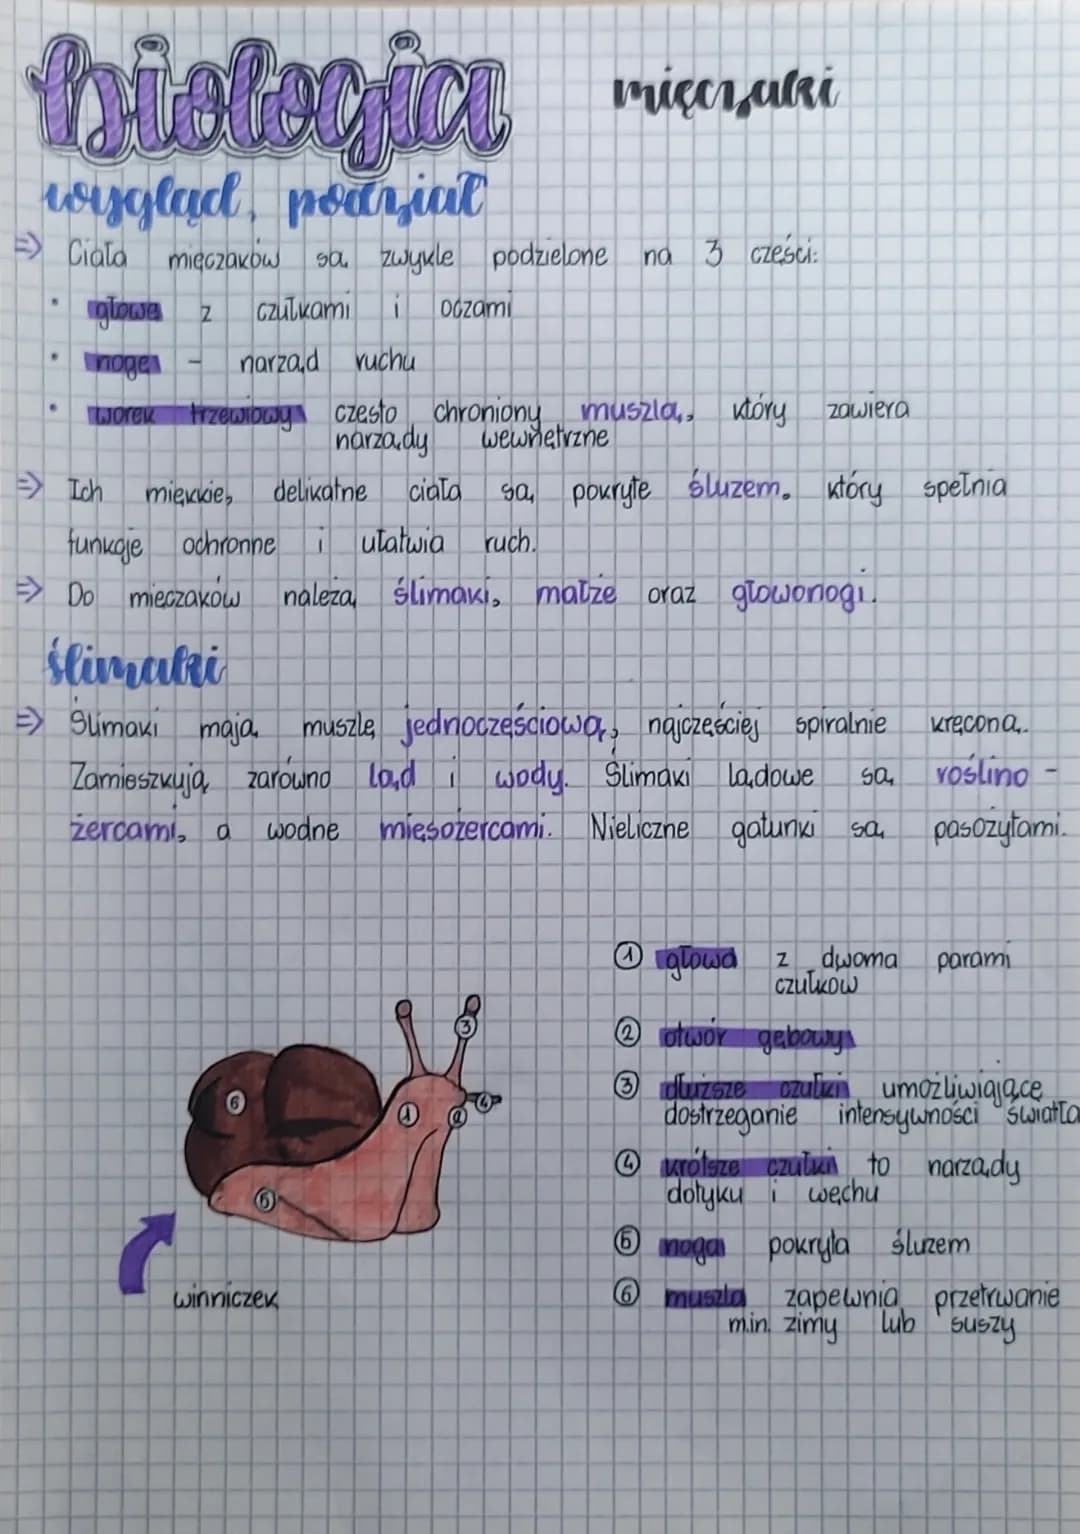 biologia
mięczaki
wygląd, podział
=> Ciała mięczaków są zwykle podzielone na 3 cześci:
• głowe z czułkami i oczami
• noge - narząd ruchu
• worek trzewiowy często chroniony muszlą, który zawiera
narządy wewnętrzne
=> Ich miękkie, delikatne ciała są pokryte śluzem, który spełnia
funkcje ochronne i ułatwia ruch.
=> Do mięczaków należą ślimaki, małże oraz głowonogi.
ślimaki
=> Ślimaki mają muszlę jednoczęściową, najczęściej spiralnie kręconą.
Zamieszkują zarówno ląd i wody. Ślimaki lądowe są roślino -
żercami, a wodne mięsożercami. Nieliczne gatunki są pasożytami.
① głowa z dwoma parami
czułków
② otwór gębowy
③ dłuższe czułki umożliwiające
dostrzeganie intensywności światła
④ krótsze czułki to narządy
dotyku i węchu
⑤ noga pokryta śluzem
⑥ muszla zapewnia przetrwanie
m.in. zimy lub suszy
3
6
1
2
4
5
winniczek